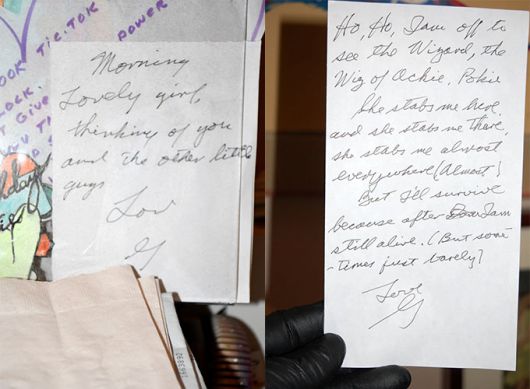 OOK TIC.TOK
POWER
LOCK.
T GIVE
Morning
Lovely girl,
thinking of you
and the other little
guys
Lov
G
1663892
Ho, Ho, I am off to
see the Wizard, the
Wiz of Ackie, Pokie
She stabs me here,
and she stabs me there,
she stabs me almost
everywhere (Almost)
But I'll survive
because after I am
still alive. (But some
-times just barely)
Love
G